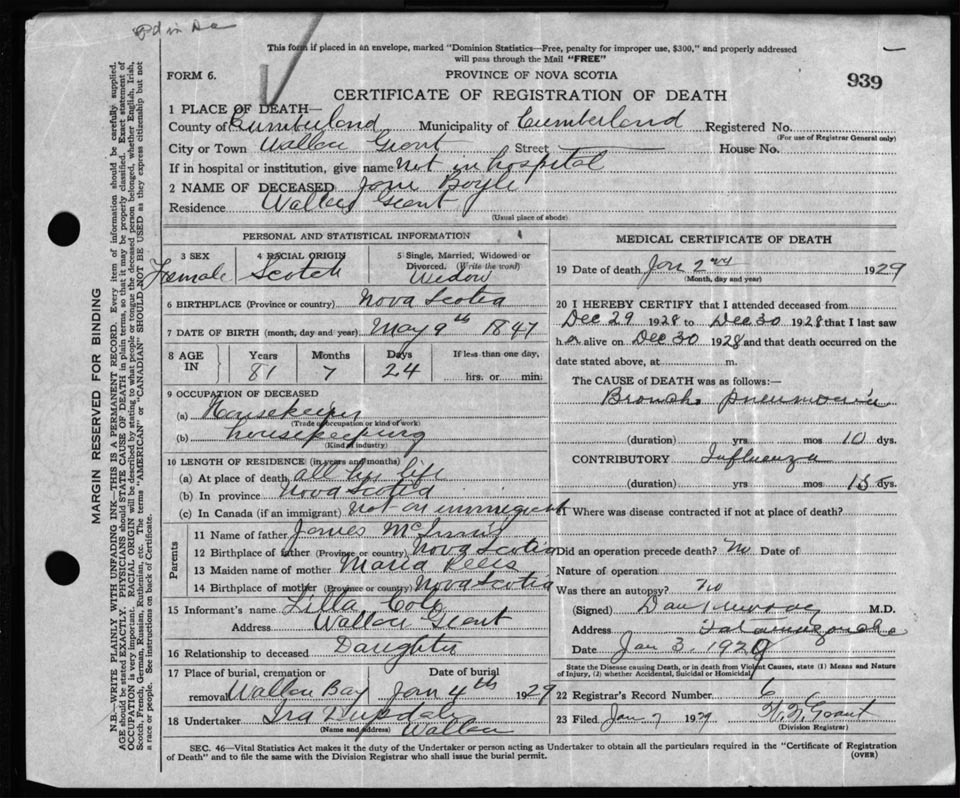 This form if placed in an envelope, marked "Dominion Statistics—Free, penalty for improper use, $300," and properly addressed
will pass through the Mail "FREE"
FORM 6. PROVINCE OF NOVA SCOTIA 939
CERTIFICATE OF REGISTRATION OF DEATH
1 PLACE OF DEATH—
County of Cumberland Municipality of Cumberland Registered No.
(For use of Registrar General only)
City or Town Wallace Grant Street House No.
If in hospital or institution, give name Not in hospital
2 NAME OF DECEASED Jane Boyle
Residence Wallace Grant
(Usual place of abode)
PERSONAL AND STATISTICAL INFORMATION
3 SEX 4 RACIAL ORIGIN 5 Single, Married, Widowed or
Divorced. (Write the word)
Female Scotch Widow
6 BIRTHPLACE (Province or country) Nova Scotia
7 DATE OF BIRTH (month, day and year) May 9th 1847
8 AGE IN Years Months Days If less than one day,
81 7 24 hrs. or min.
9 OCCUPATION OF DECEASED
(a) Housekeeper
(Trade occupation or kind of work)
(b) housekeeping
(Kind of industry)
10 LENGTH OF RESIDENCE (in years and months)
(a) At place of death all his life
(b) In province Nova Scotia
(c) In Canada (if an immigrant) Not an immigrant
Parents
11 Name of father James Mc
12 Birthplace of father (Province or country) Nova Scotia
13 Maiden name of mother Maria
14 Birthplace of mother (Province or country) Nova Scotia
15 Informant's name Lilla Cole
Address Wallace Grant
16 Relationship to deceased Daughter
17 Place of burial, cremation or Date of burial
removal Wallace Bay Jan 4th 1929
18 Undertaker Ira
(Name and address) Wallace
MEDICAL CERTIFICATE OF DEATH
19 Date of death Jan 2nd 1929
(Month, day and year)
20 I HEREBY CERTIFY that I attended deceased from
Dec 29 1928 to Dec 30 1928 that I last saw
her alive on Dec 30 1928 and that death occurred on the
date stated above, at m.
The CAUSE of DEATH was as follows:—
Broncho pneumonia
(duration) yrs mos 10 dys.
CONTRIBUTORY Influenza
(duration) yrs mos 15 dys.
Where was disease contracted if not at place of death?
Did an operation precede death? No Date of
Nature of operation
Was there an autopsy? No
(Signed) Dan Murray M.D.
Address Tatamagouche
Date Jan 3. 1929
State the Disease causing Death, or in death from Violent Causes, state (1) Means and Nature
of Injury, (2) whether Accidental, Suicidal or Homicidal
22 Registrar's Record Number 6
23 Filed Jan 7 1929 Grant
(Division Registrar)
SEC. 46—Vital Statistics Act makes it the duty of the Undertaker or person acting as Undertaker to obtain all the particulars required in the "Certificate of Registration
of Death" and to file the same with the Division Registrar who shall issue the burial permit. (OVER)
MARGIN RESERVED FOR BINDING
N.B.—WRITE PLAINLY WITH UNFADING INK—THIS IS A PERMANENT RECORD. Every item of information should be carefully supplied.
AGE should be stated EXACTLY. PHYSICIANS should STATE CAUSE OF DEATH in plain terms, so that it may be properly classified. Exact statement of
OCCUPATION is very important. RACIAL ORIGIN will be described by stating to what people or tongue the deceased person belonged, whether English, Irish,
Scotch, French, German, Russian, Ruthenian, etc. The terms "AMERICAN" or "CANADIAN" SHOULD NOT BE USED as they express citizenship but not
a race or people. See instructions on back of Certificate.